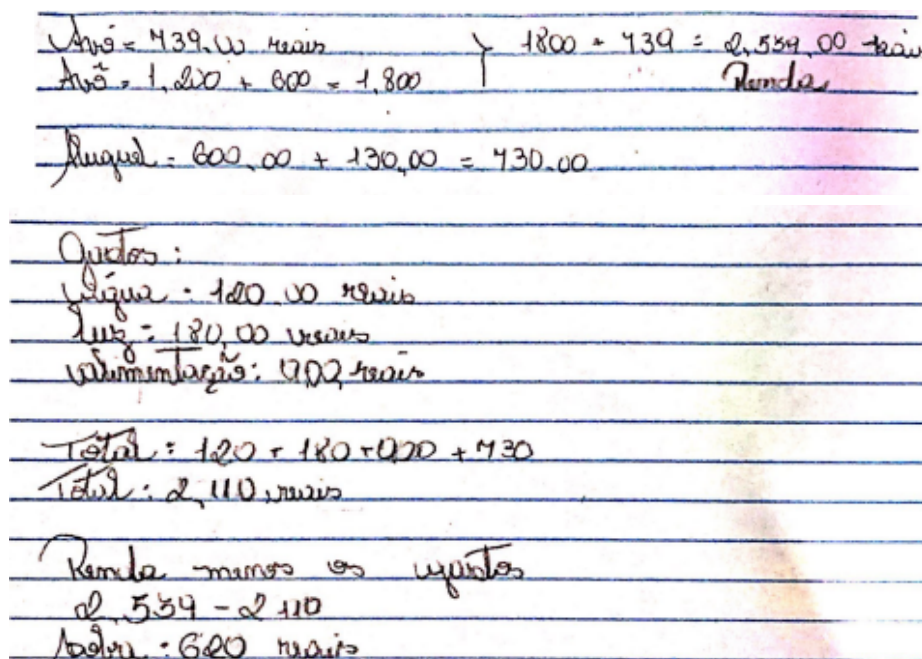 Avó = 739.00 reais } 1800 + 739 = 2,539,00 reais
Avô = 1,200 + 600 = 1,800 Renda
Aluguel = 600,00 + 130,00 = 730.00
Gastos:
Água : 120,00 reais
Luz : 180,00 reais
alimentação: reais
Total : 120 + 180 + + 730
Total : 2,110, reais
Renda menos os gastos
2,539 - 2 110
sobra : 620 reais